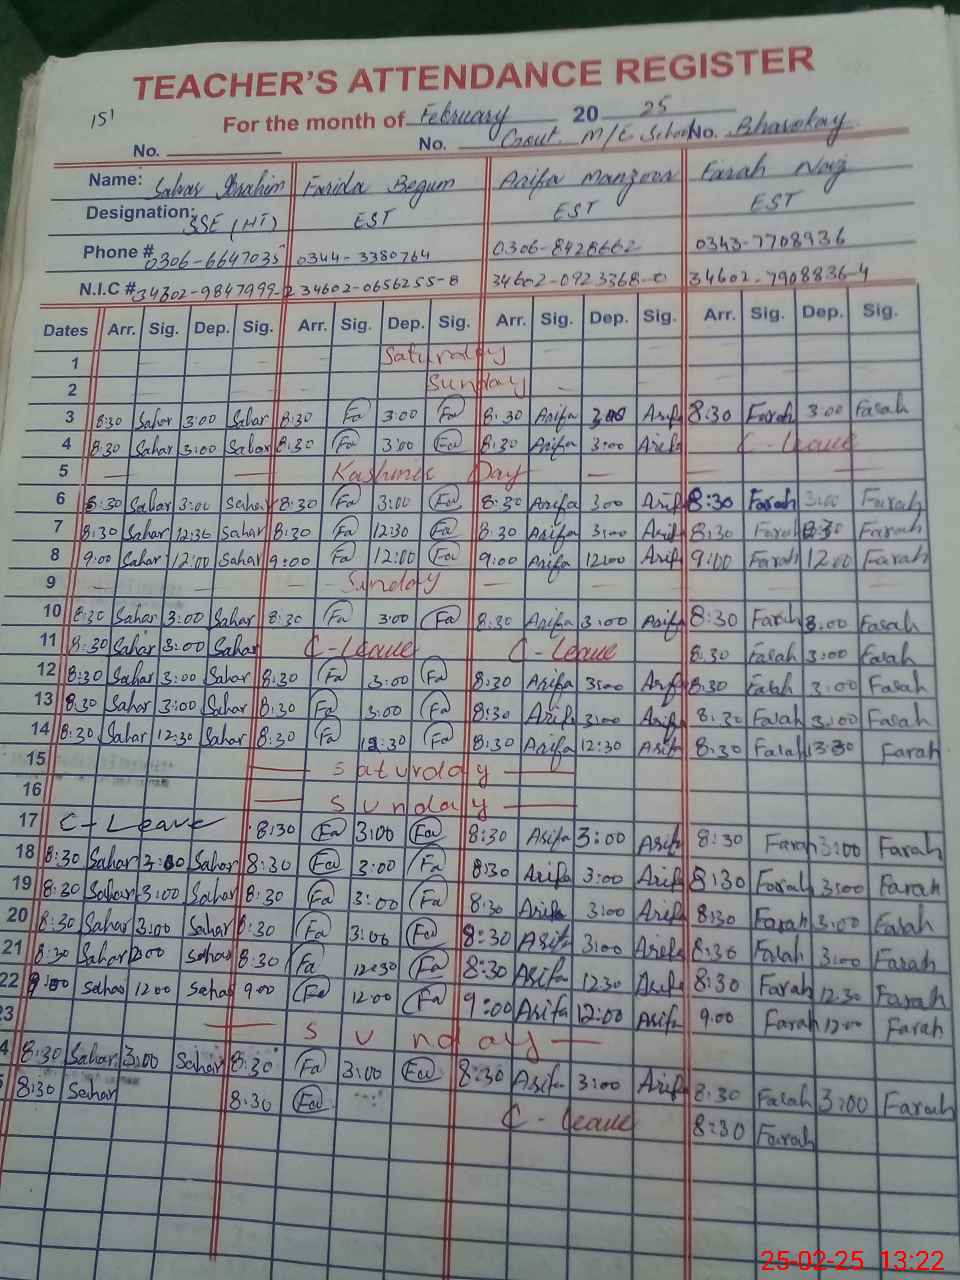 TEACHER'S ATTENDANCE REGISTER
151
For the month of February 20 25
No. No. Govt. M/E School No. Bhasokay
Name: Sahar Ibrahim Farida Begum Arifa Manzoor Farah Naz
Designation: SSE (HT) EST EST EST
Phone # 0306-6647035 0344-3380764 0306-8428662 0343-7708936
N.I.C # 34602-9847999-2 34602-0656255-8 34602-0923368-0 34602-7908836-4
Dates Arr. Sig. Dep. Sig. Arr. Sig. Dep. Sig. Arr. Sig. Dep. Sig. Arr. Sig. Dep. Sig.
1 Saturday
2 Sunday
3 8:30 Sahar 3:00 Sahar 8:30 Fa 3:00 Fa 8:30 Arifa 3:00 Arifa 8:30 Farah 3:00 Farah
4 8:30 Sahar 3:00 Sahar 8:30 Fa 3:00 Fa 8:30 Arifa 3:00 Arifa C-Leave
5 Kashmir Day
6 8:30 Sahar 3:00 Sahar 8:30 Fa 3:00 Fa 8:30 Arifa 3:00 Arif 8:30 Farah 3:00 Farah
7 8:30 Sahar 12:30 Sahar 8:30 Fa 12:30 Fa 8:30 Arifa 3:00 Arif 8:30 Farah Farah
8 9:00 Sahar 12:00 Sahar 9:00 Fa 12:00 Fa 9:00 Arifa 12:00 Arif 9:00 Farah 12:00 Farah
9 Sunday
10 8:30 Sahar 3:00 Sahar 8:30 Fa 3:00 Fa 8:30 Arifa 3:00 Arif 8:30 Farah 3:00 Farah
11 8:30 Sahar 3:00 Sahar C-Leave C-Leave 8:30 Farah 3:00 Farah
12 8:30 Sahar 3:00 Sahar 8:30 Fa 3:00 Fa 8:30 Arifa 3:00 Arif 8:30 Farah 3:00 Farah
13 8:30 Sahar 3:00 Sahar 8:30 Fa 3:00 Fa 8:30 Arifa 3:00 Arif 8:30 Farah 3:00 Farah
14 8:30 Sahar 12:30 Sahar 8:30 Fa 12:30 Fa 8:30 Arifa 12:30 Arif 8:30 Farah Farah
15 Saturday
16 Sunday
17 C-Leave 8:30 Fa 3:00 Fa 8:30 Asifa 3:00 Asif 8:30 Farah 3:00 Farah
18 8:30 Sahar 3:00 Sahar 8:30 Fa 3:00 Fa 8:30 Asifa 3:00 Arif 8:30 Farah 3:00 Farah
19 8:30 Sahar 3:00 Sahar 8:30 Fa 3:00 Fa 8:30 Arifa 3:00 Arif 8:30 Farah 3:00 Farah
20 8:30 Sahar 3:00 Sahar 8:30 Fa 3:00 Fa 8:30 Asifa 3:00 Arifa 8:30 Farah 3:00 Farah
21 8:30 Sahar Sahar 8:30 Fa 12:30 Fa 8:30 Asifa 12:30 Asif 8:30 Farah 12:30 Farah
22 9:00 Sahar 12:00 Sahar 9:00 Fa 12:00 Fa 9:00 Asifa 12:00 Asif 9:00 Farah 12:00 Farah
23 Sunday
4 8:30 Sahar 3:00 Sahar 8:30 Fa 3:00 Fa 8:30 Asifa 3:00 Arifa 8:30 Farah 3:00 Farah
5 8:30 Sahar 8:30 Fa C-Leave 8:30 Farah
25-02-25 13:22